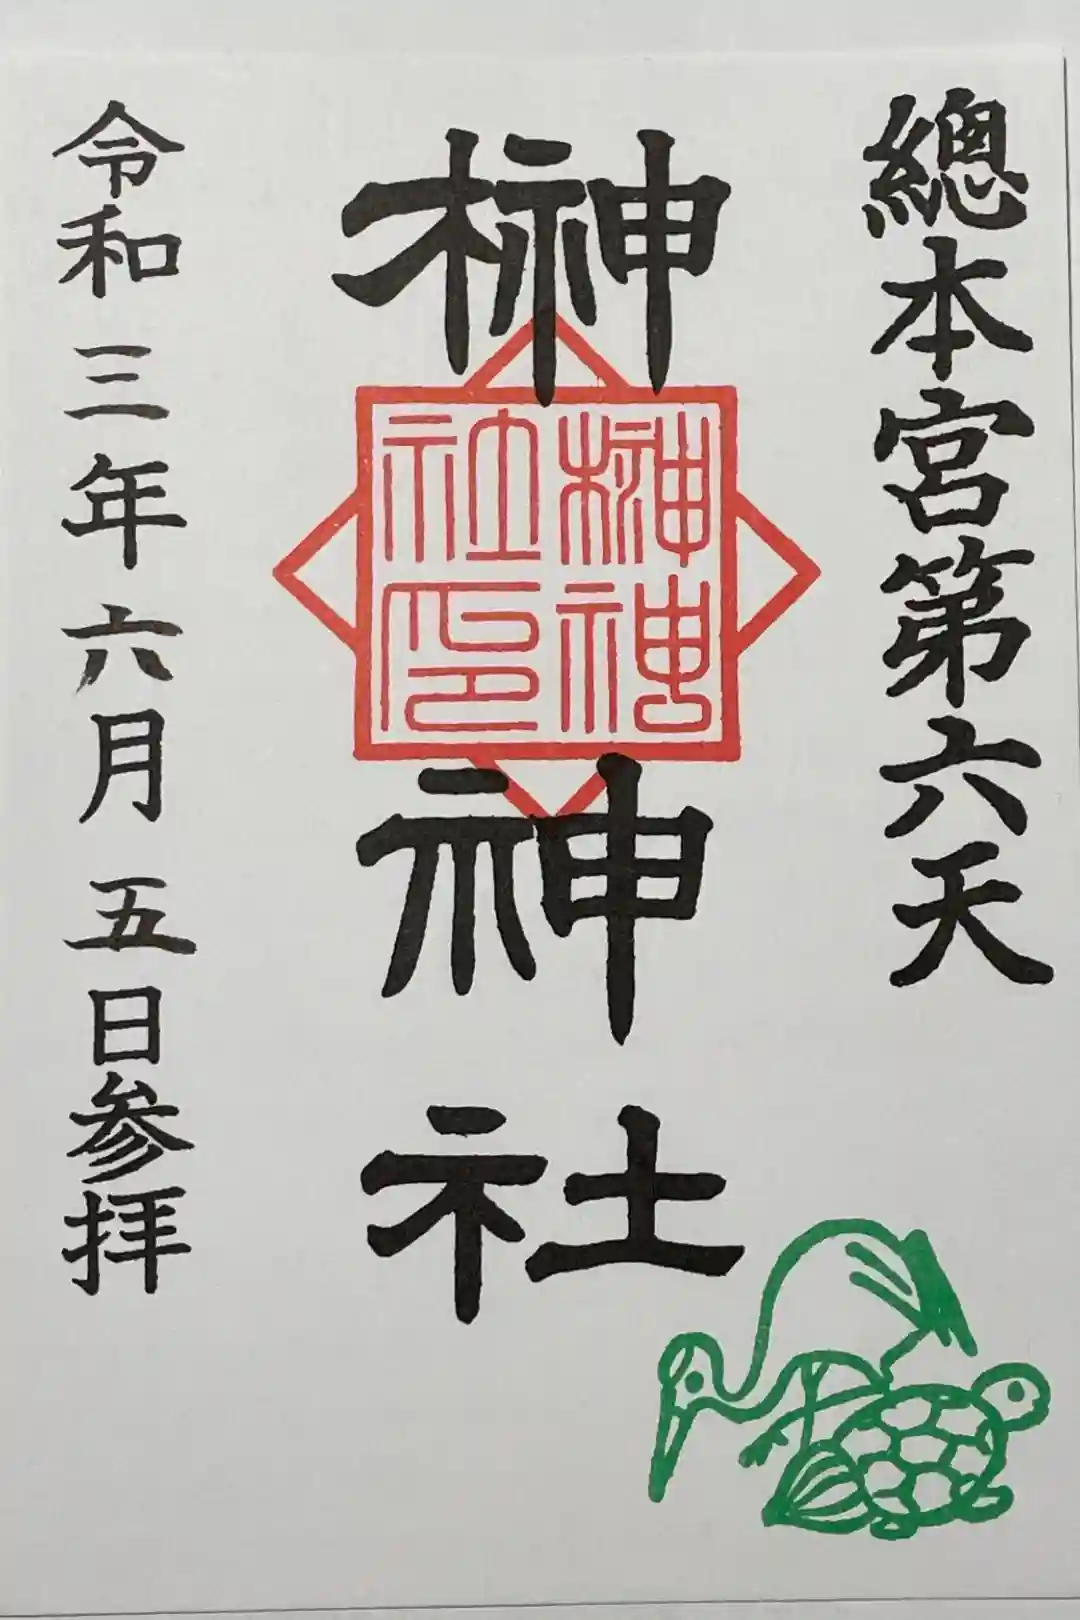 總本宮第六天
榊神社
榊神
社印
令和三年六月五日参拝